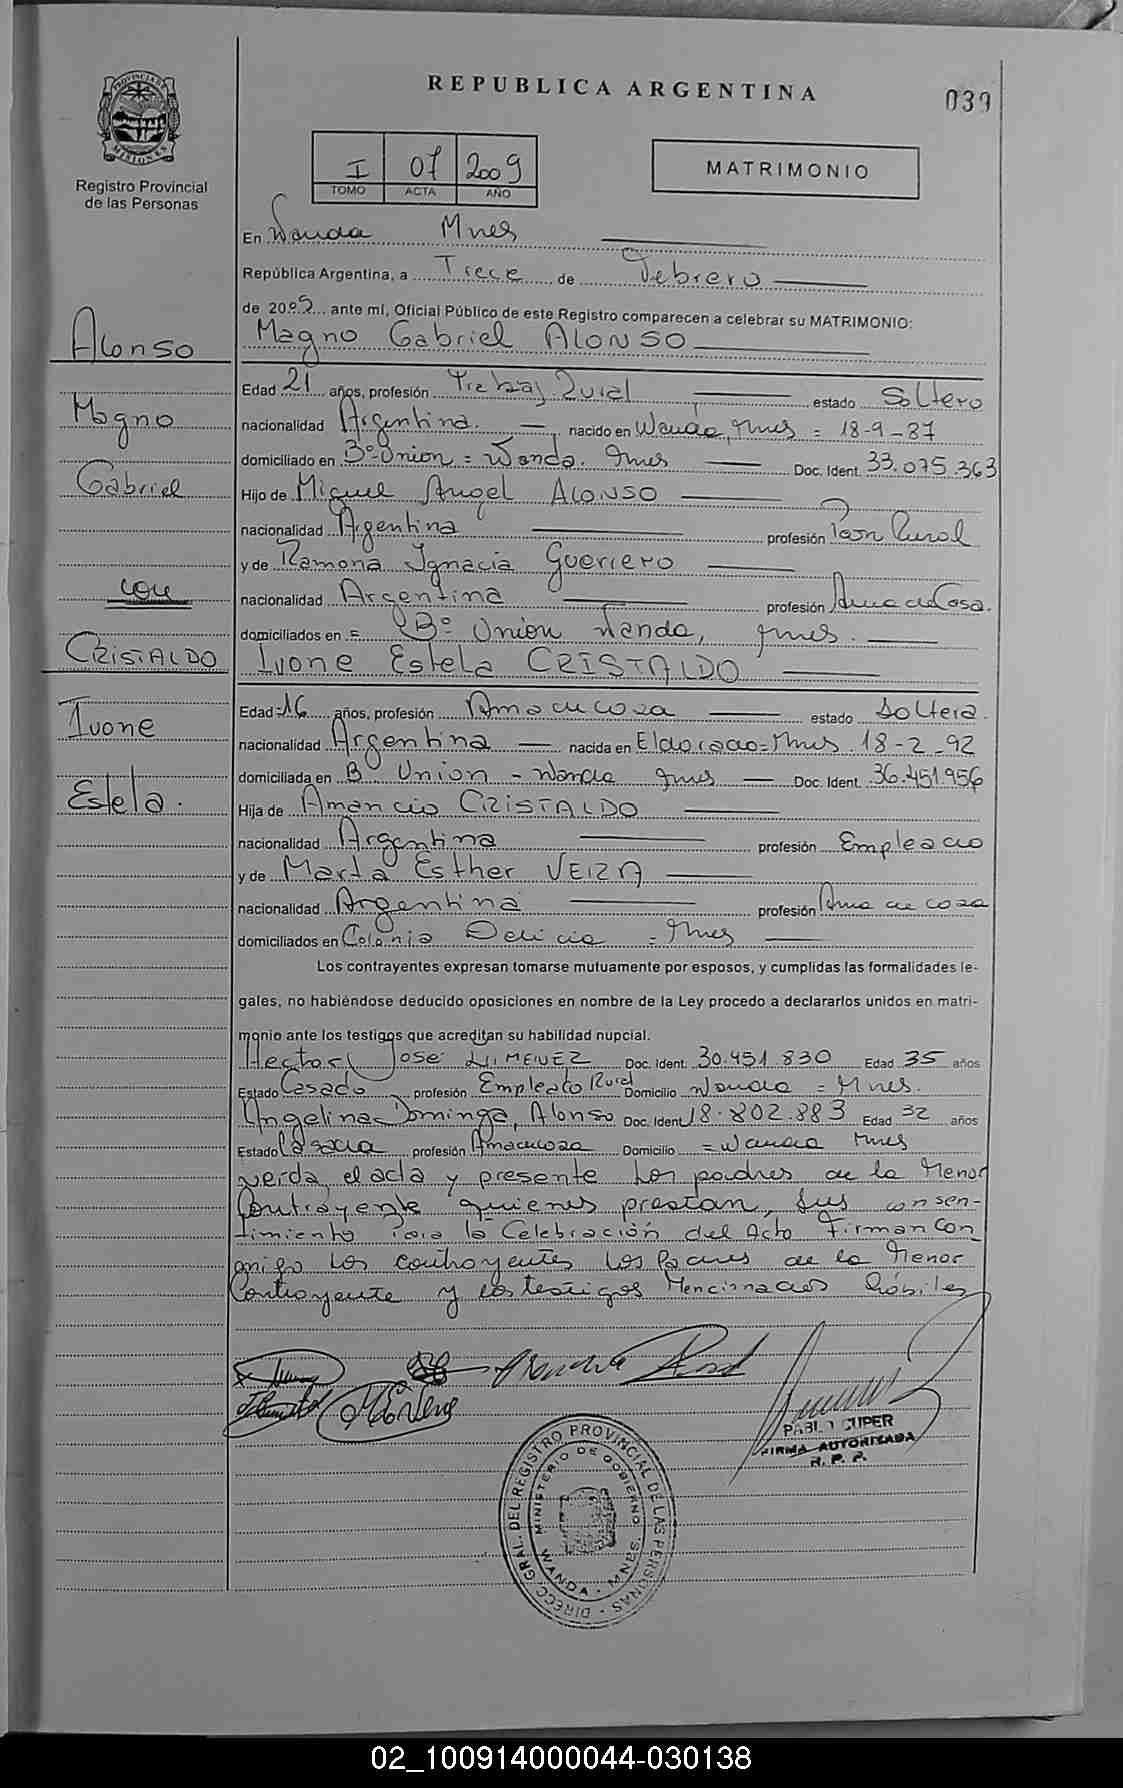 REPUBLICA ARGENTINA
039
PROVINCIA DE MISIONES
Registro Provincial
de las Personas
I 07 2009
TOMO ACTA AÑO
MATRIMONIO
En Wanda Mnes
República Argentina, a Trece de Febrero
de 2009 ante mí, Oficial Público de este Registro comparecen a celebrar su MATRIMONIO:
Alonso
Magno
Gabriel
con
CRISTALDO
Ivone
Estela.
Magno Gabriel ALONSO
Edad 21 años, profesión Trabaj. Rural estado Soltero
nacionalidad Argentina. nacido en Wanda, Mnes = 18-9-87
domiciliado en Bº Union = Wanda. Mnes Doc. Ident. 33.075.363
Hijo de Miguel Angel ALONSO
nacionalidad Argentina profesión Peon Rural
y de Ramona Ignacia Guerrero
nacionalidad Argentina profesión Ama de Casa.
domiciliados en = Bº Union Wanda, Mnes.
Ivone Estela CRISTALDO
Edad =16 años, profesión Ama de casa estado Soltera.
nacionalidad Argentina nacida en Eldorado=Mnes. 18-2-92
domiciliada en Bº Union - Wanda Mnes Doc. Ident. 36.451.956
Hija de Amancio CRISTALDO
nacionalidad Argentina profesión Empleado
y de Marta Esther VEIZA
nacionalidad Argentina profesión Ama de casa
domiciliados en Colonia Delicia = Mnes
Los contrayentes expresan tomarse mutuamente por esposos, y cumplidas las formalidades le-
gales, no habiéndose deducido oposiciones en nombre de la Ley procedo a declararlos unidos en matri-
monio ante los testigos que acreditan su habilidad nupcial.
Hector José Doc. Ident. 30.451.830 Edad 35 años
Estado Casado profesión Empleado Rural Domicilio Wanda = Mnes.
Angelina Dominga, Alonso Doc. Ident 18.802.883 Edad 32 años
Estado Casada profesión Ama de casa Domicilio =Wanda Mnes
el acta y presente los padres de la Menor
Contrayente quienes prestan, sus consen-
timiento para la Celebración del Acto Firman Con
migo los contrayentes los Padres de la Menor
Contrayente y los testigos Mencionados Hábiles
PABLO CUPER
FIRMA AUTORIZADA
R. P. P.
DIRECC. GRAL. DEL REGISTRO PROVINCIAL DE LAS PERSONAS
MINISTERIO DE GOBIERNO
WANDA - MNES
02_100914000044-030138